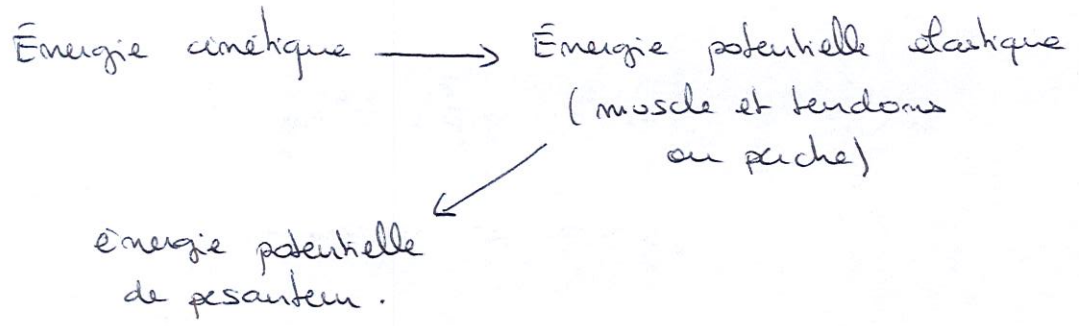 Énergie cinétique → Énergie potentielle élastique
(muscle et tendons
ou perche)
énergie potentielle
de pesanteur.